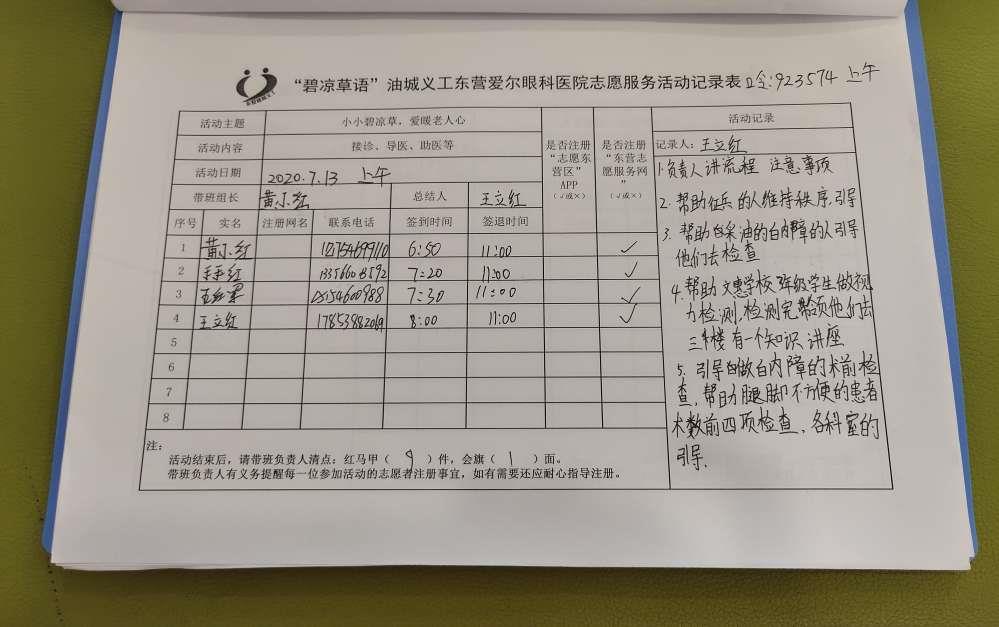 “碧凉草语”油城义工东营爱尔眼科医院志愿服务活动记录表 923574 上午
活动主题 小小碧凉草，爱暖老人心
活动内容 接诊、导医、助医等
活动日期 2020.7.13 上午
带班组长 黄小红 总结人 王立红
序号 实名 注册网名 联系电话 签到时间 签退时间
是否注册“志愿东营区”APP（√或×）
是否注册“东营志愿服务网”（√或×）
1 黄小红 6:50 11:00 ✓
2 7:20 11:00 ✓
3 7:30 11:00 ✓
4 王立红 17853882069 8:00 11:00 ✓
5
6
7
8
注：
活动结束后，请带班负责人清点：红马甲（ 9 ）件，会旗（ 1 ）面。
带班负责人有义务提醒每一位参加活动的志愿者注册事宜，如有需要还应耐心指导注册。
活动记录
记录人：王立红
1.负责人讲流程 注意事项
2. 帮助征兵的人维持秩序，引导
3. 帮助采油的白内障的人引导
他们去检查
4.帮助文惠学校 班级学生做视
力检测，检测完带领他们去
三楼有一个知识讲座
5. 引导做白内障的术前检
查，帮助腿脚不方便的患者
术前四项检查，各科室的
引导.